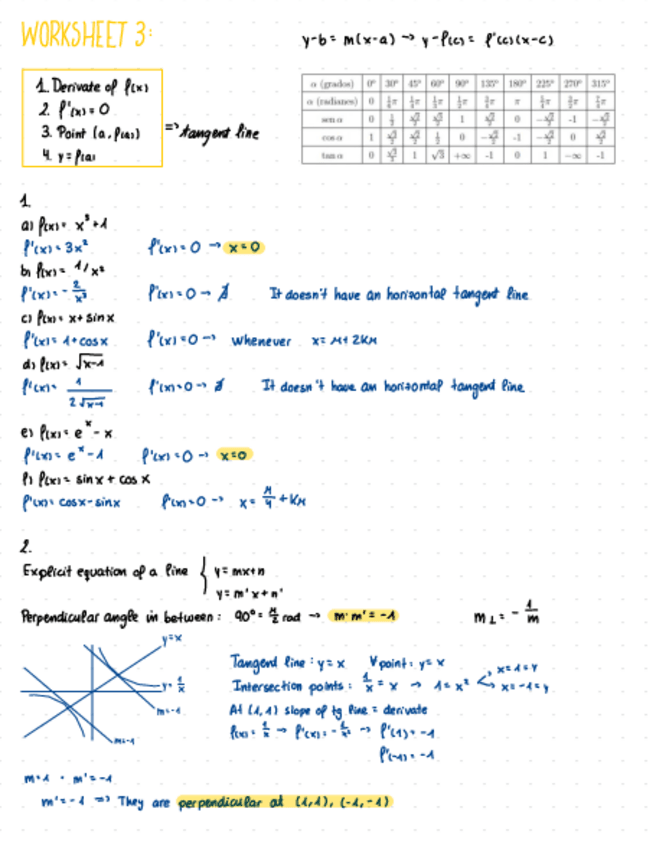 WORKSHEET 3:
y-b = m(x-a) → y-f(c) = f'(c)(x-c)
1. Derivate of f(x)
2. f'(x) = 0
3. Point (a, f(a))
4. y = f(a)
=> tangent line
α (grados) 0° 30° 45° 60° 90° 135° 180° 225° 270° 315°
α (radianes) 0 π
sen α 0 1/2 √2/2 √3/2 1 √2/2 0 -√2/2 -1 -√2/2
cos α 1 √3/2 √2/2 1/2 0 -√2/2 -1 -√2/2 0 √2/2
tan α 0 1 √3 +∞ -1 0 1 -∞ -1
1.
a) f(x) = x³+1
f'(x) = 3x² f'(x) = 0 → x=0
b) f(x) = 1/x²
f'(x) = -2/x³ f'(x) = 0 → ∄ It doesn't have an horizontal tangent line
c) f(x) = x + sin x
f'(x) = 1 + cos x f'(x) = 0 → whenever x = π + 2Kπ
d) f(x) = √x-1
f'(x) = 1/2√x-1 f'(x) = 0 → ∄ It doesn't have an horizontal tangent line
e) f(x) = eˣ - x
f'(x) = eˣ - 1 f'(x) = 0 → x=0
f) f(x) = sin x + cos x
f'(x) = cos x - sin x f'(x) = 0 → x = π/4 + Kπ
2.
Explicit equation of a line { y = mx+n
y = m'x + n'
Perpendicular angle in between: 90° = π/2 rad → m·m' = -1 m⊥ = -1/m
y=x
y=1/x
m=-1
m=-1
Tangent line: y=x ∀point: y=x
Intersection points: 1/x = x → 1 = x² x=1=y
x=-1=y
At (1,1) slope of tg line = derivate
f(x) = 1/x → f'(x) = -1/x² → f'(1) = -1
f'(-1) = -1
m=1 · m' = -1
m' = -1 => They are perpendicular at (1,1), (-1,-1)